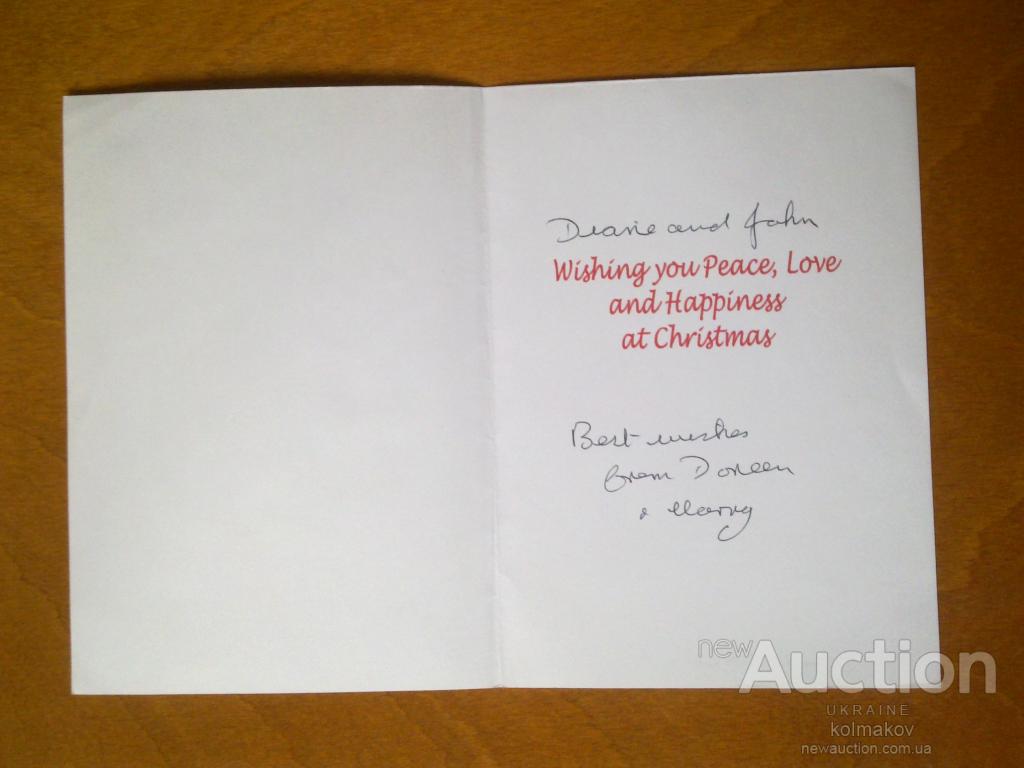 Diane and John
Wishing you Peace, Love
and Happiness
at Christmas
Best wishes
from Doreen
& Harry
newAuction
UKRAINE
kolmakov
newauction.com.ua